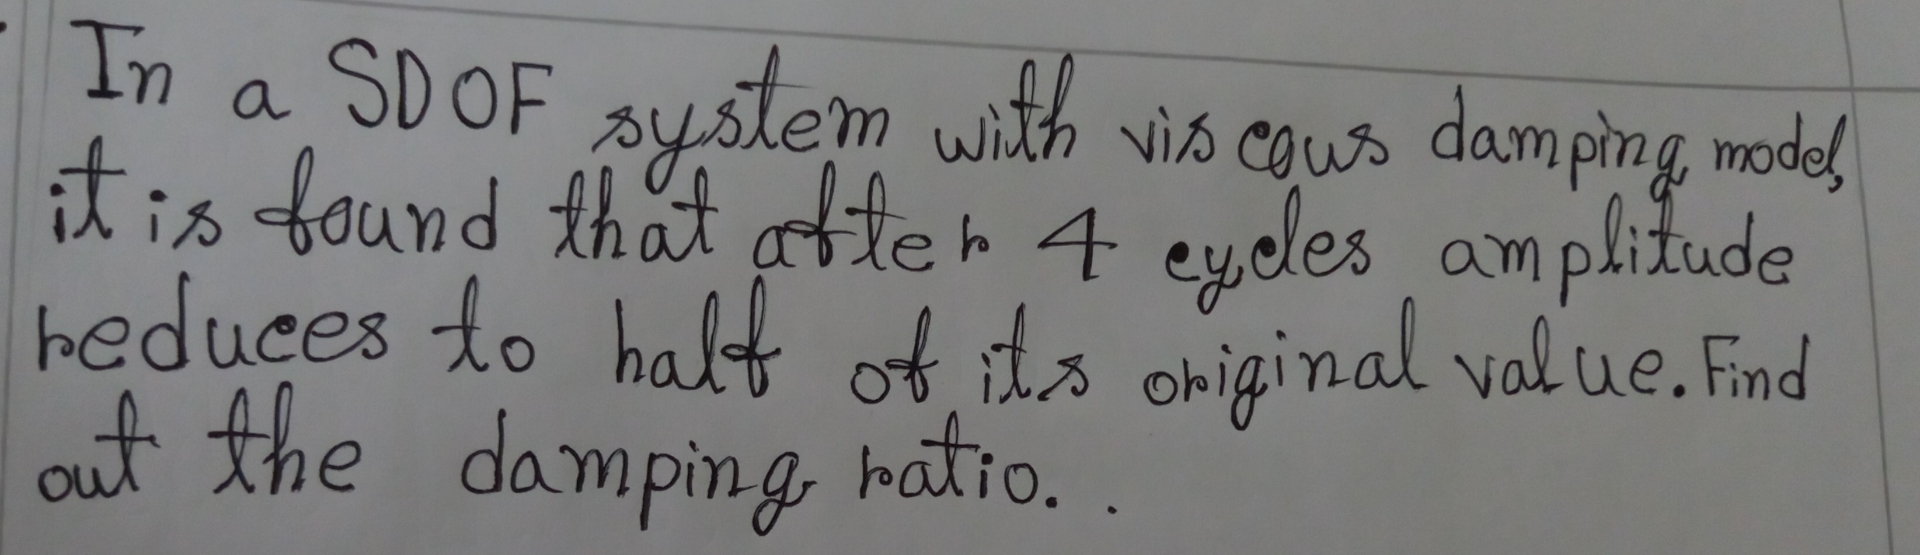 In a SDOF system with viscous damping model,
it is found that after 4 cycles amplitude
reduces to half of its original value. Find
out the damping ratio..